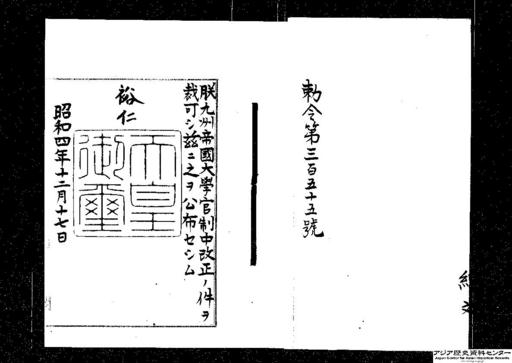 勅令第三百五十五號
朕九州帝國大學官制中改正ノ件ヲ
裁可シ茲ニ之ヲ公布セシム
裕仁
天皇
御璽
昭和四年十二月十七日
アジア歴史資料センター
Japan Center for Asian Historical Records